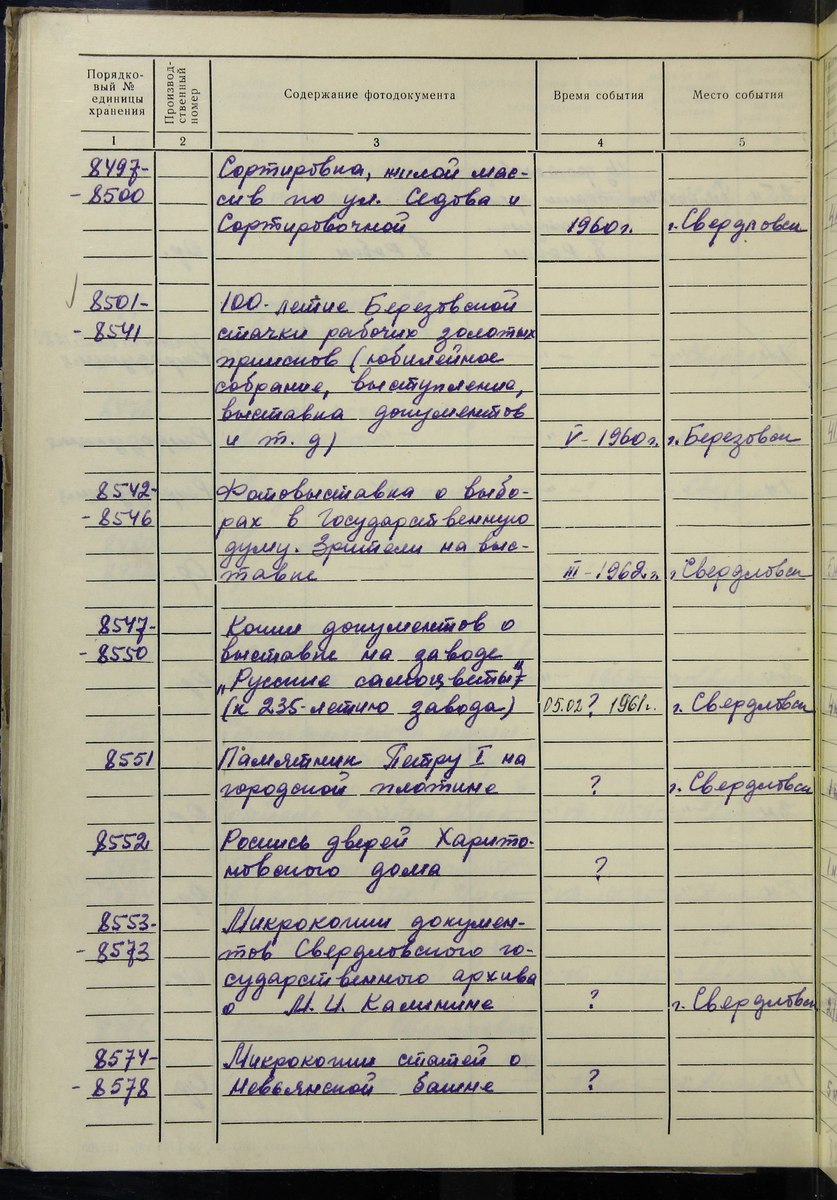 Порядко-
вый №
единицы
хранения
Производ-
ственный
номер
Содержание фотодокумента
Время события
Место события
1 2 3 4 5
8497- Сортировка, жилой мас-
- 8500 сив по ул. Седова и
Сортировочной 1960г. г. Свердловск
8501- 100-летие Березовской
- 8541 стачки рабочих золотых
приисков (юбилейное
собрание, выступления,
выставка документов
и т. д) V - 1960г. г. Березовск
8542- Фотовыставка о выбо-
- 8546 рах в Государственную
думу. Зрители на выс-
тавке III - 1962г. г. Свердловск
8547- Копии документов о
- 8550 выставке на заводе
„Русские самоцветы"
(к 235-летию завода) 05.02? 1961г. г. Свердловск
8551 Памятник Петру I на
городской плотине ? г. Свердловск
8552 Роспись дверей Харито-
новского дома ?
8553- Микрокопии докумен-
- 8573 тов Свердловского го-
сударственного архива
о М. И. Калинине ? г. Свердловск
8574- Микрокопии статей о
- 8578 Невьянской башне ?